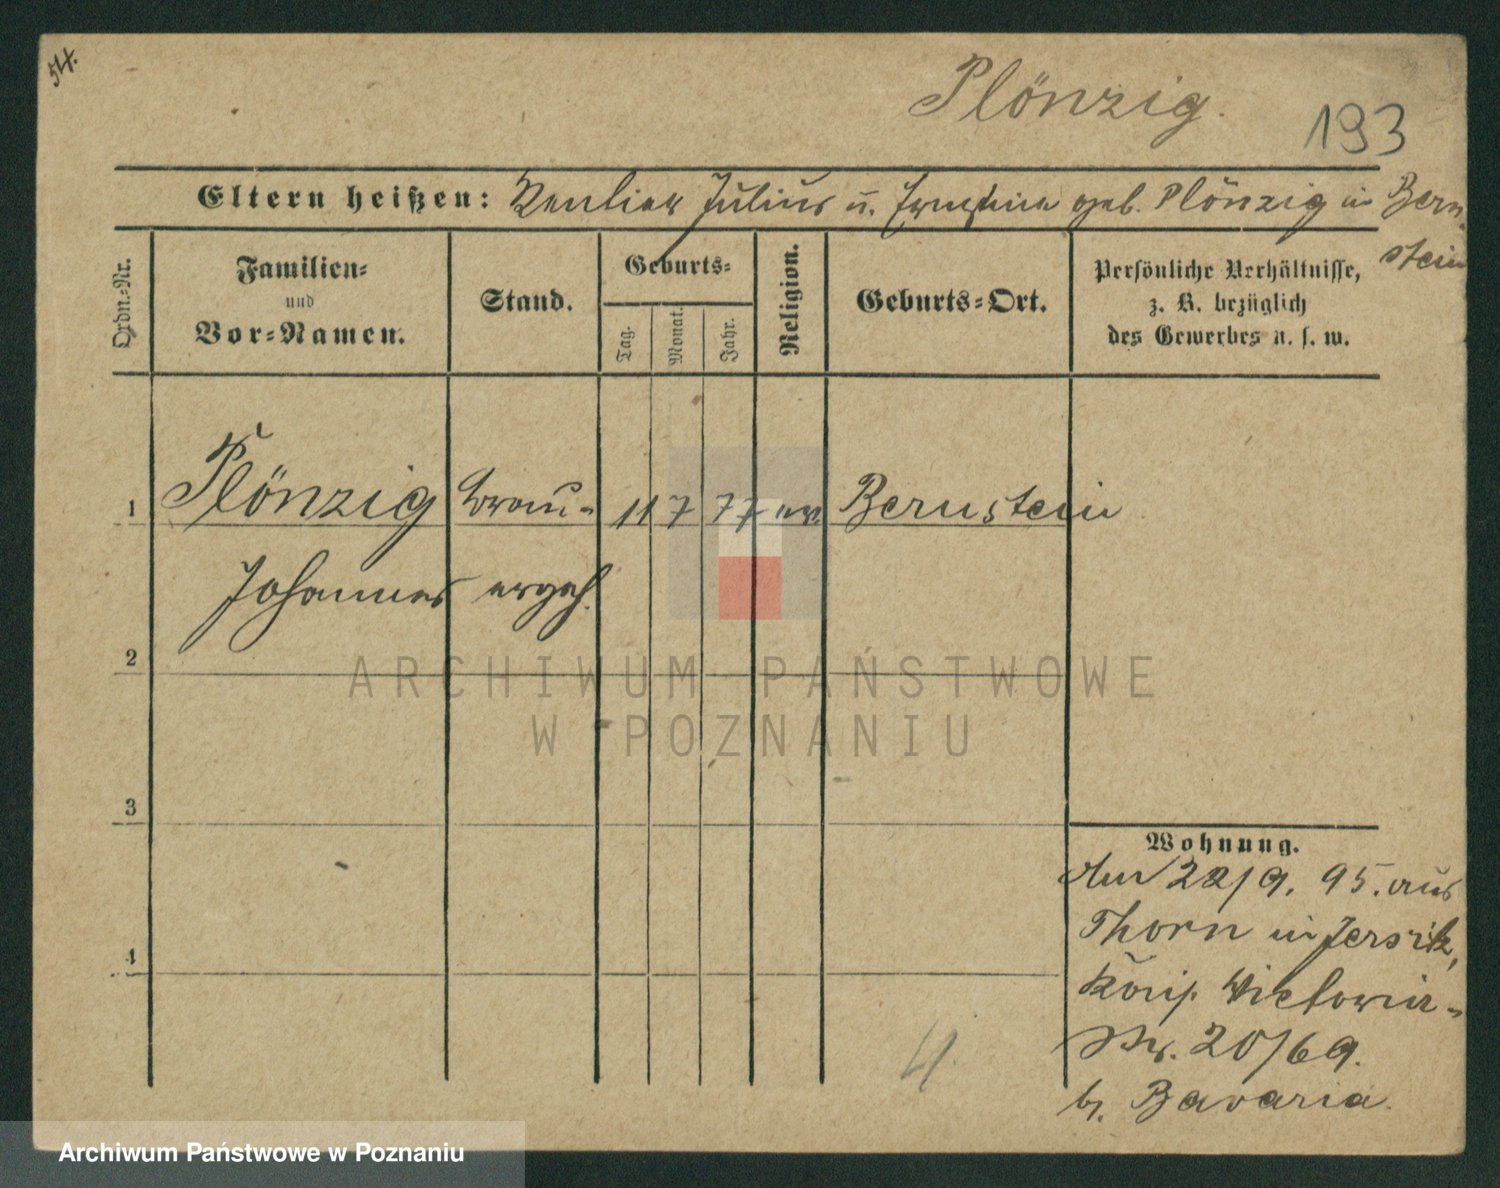 54.
Plönzig.
193
Eltern heißen: Rentier Julius u. Ernstine geb. Plönzig in Bern
stein
Ordn.-Nr.
Familien-
und
Vor-Namen.
Stand.
Geburts-
Tag.
Monat.
Jahr.
Religion.
Geburts-Ort.
Persönliche Verhältnisse,
z. B. bezüglich
des Gewerbes u. s. w.
1 Plönzig Brau- 11 7 77 ev Bernstein
Johannes
2
3
4
ARCHIWUM PAŃSTWOWE
W POZNANIU
Wohnung.
Am 28/9. 95. aus
Thorn in Jersitz,
Königs. Victoria-
Str. 20/69.
b. Bavaria.
4.
Archiwum Państwowe w Poznaniu